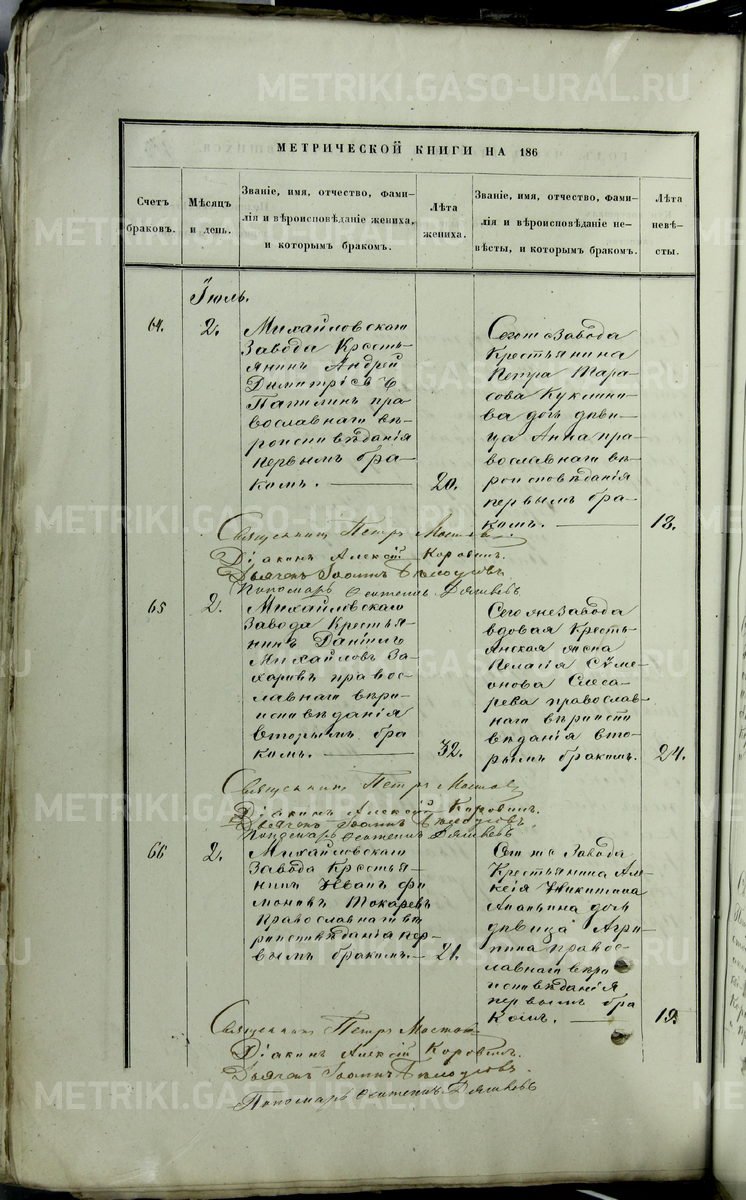 METRIKI.GASO-URAL.RU
МЕТРИЧЕСКОЙ КНИГИ НА 186
Счетъ браковъ.
Мѣсяцъ и день.
Званіе, имя, отчество, фами-
лія и вѣроисповѣданіе жениха,
и которымъ бракомъ.
Лѣта жениха.
Званіе, имя, отчество, фами-
лія и вѣроисповѣданіе не-
вѣсты, и которымъ бракомъ.
Лѣта невѣ-
сты.
Іюль.
64.
2.
Михайловскаго
Завода Кресть-
янинъ Андрей
Димитріевъ
пра-
вославнаго вѣ-
роисповѣданія
первымъ бра-
комъ.
20.
Сегоже Завода
Крестьянина
Петра Тара-
сова
дочь дѣви-
ца Анна пра-
вославнаго вѣ-
роисповѣданія
первымъ бра-
комъ.
18.
Священникъ Петръ
Діаконъ Алексій Коровинъ.
Дьячекъ Іоаннъ
Пономарь
65
2.
Михайловскаго
Завода Крестья-
нинъ Даніилъ
Михайловъ За-
харовъ правос-
лавнаго вѣро-
исповѣданія
вторымъ бра-
комъ.
32.
Сегоже Завода
вдовая Кресть-
янская жена
Пелагія Симе-
онова Слеса-
рева православ-
наго вѣроиспо-
вѣданія вто-
рымъ бракомъ.
24.
Священникъ Петръ
Діаконъ Алексій Коровинъ.
Дьячекъ Іоаннъ
Пономарь
66
2.
Михайловскаго
Завода Крестья-
нинъ Иванъ Фи-
моновъ Токаревъ
православнаго вѣ-
роисповѣданія пер-
вымъ бракомъ.
21.
Сегоже Завода
Крестьянина Але-
ксія Никитина
Ананьина дочь
дѣвица Агри-
пина правос-
лавнаго вѣро-
исповѣданія
первымъ бра-
комъ.
19.
Священникъ Петръ
Діаконъ Алексій Коровинъ.
Дьячекъ Іоаннъ
Пономарь